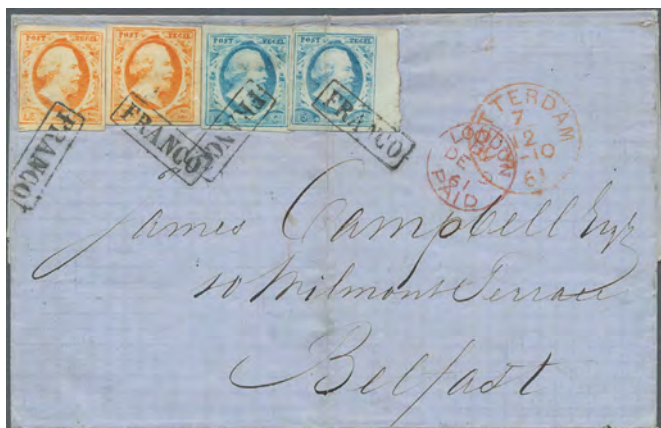 POST ZEGEL POST ZEGEL POST ZEGEL POST ZEGEL
FRANCO FRANCO FRANCO FRANCO
TTERDAM
7
12
-10
61
LONDON
DE 9
61
PAID
James Campbell Esqr
10 Wilmont Terrace
Belfast